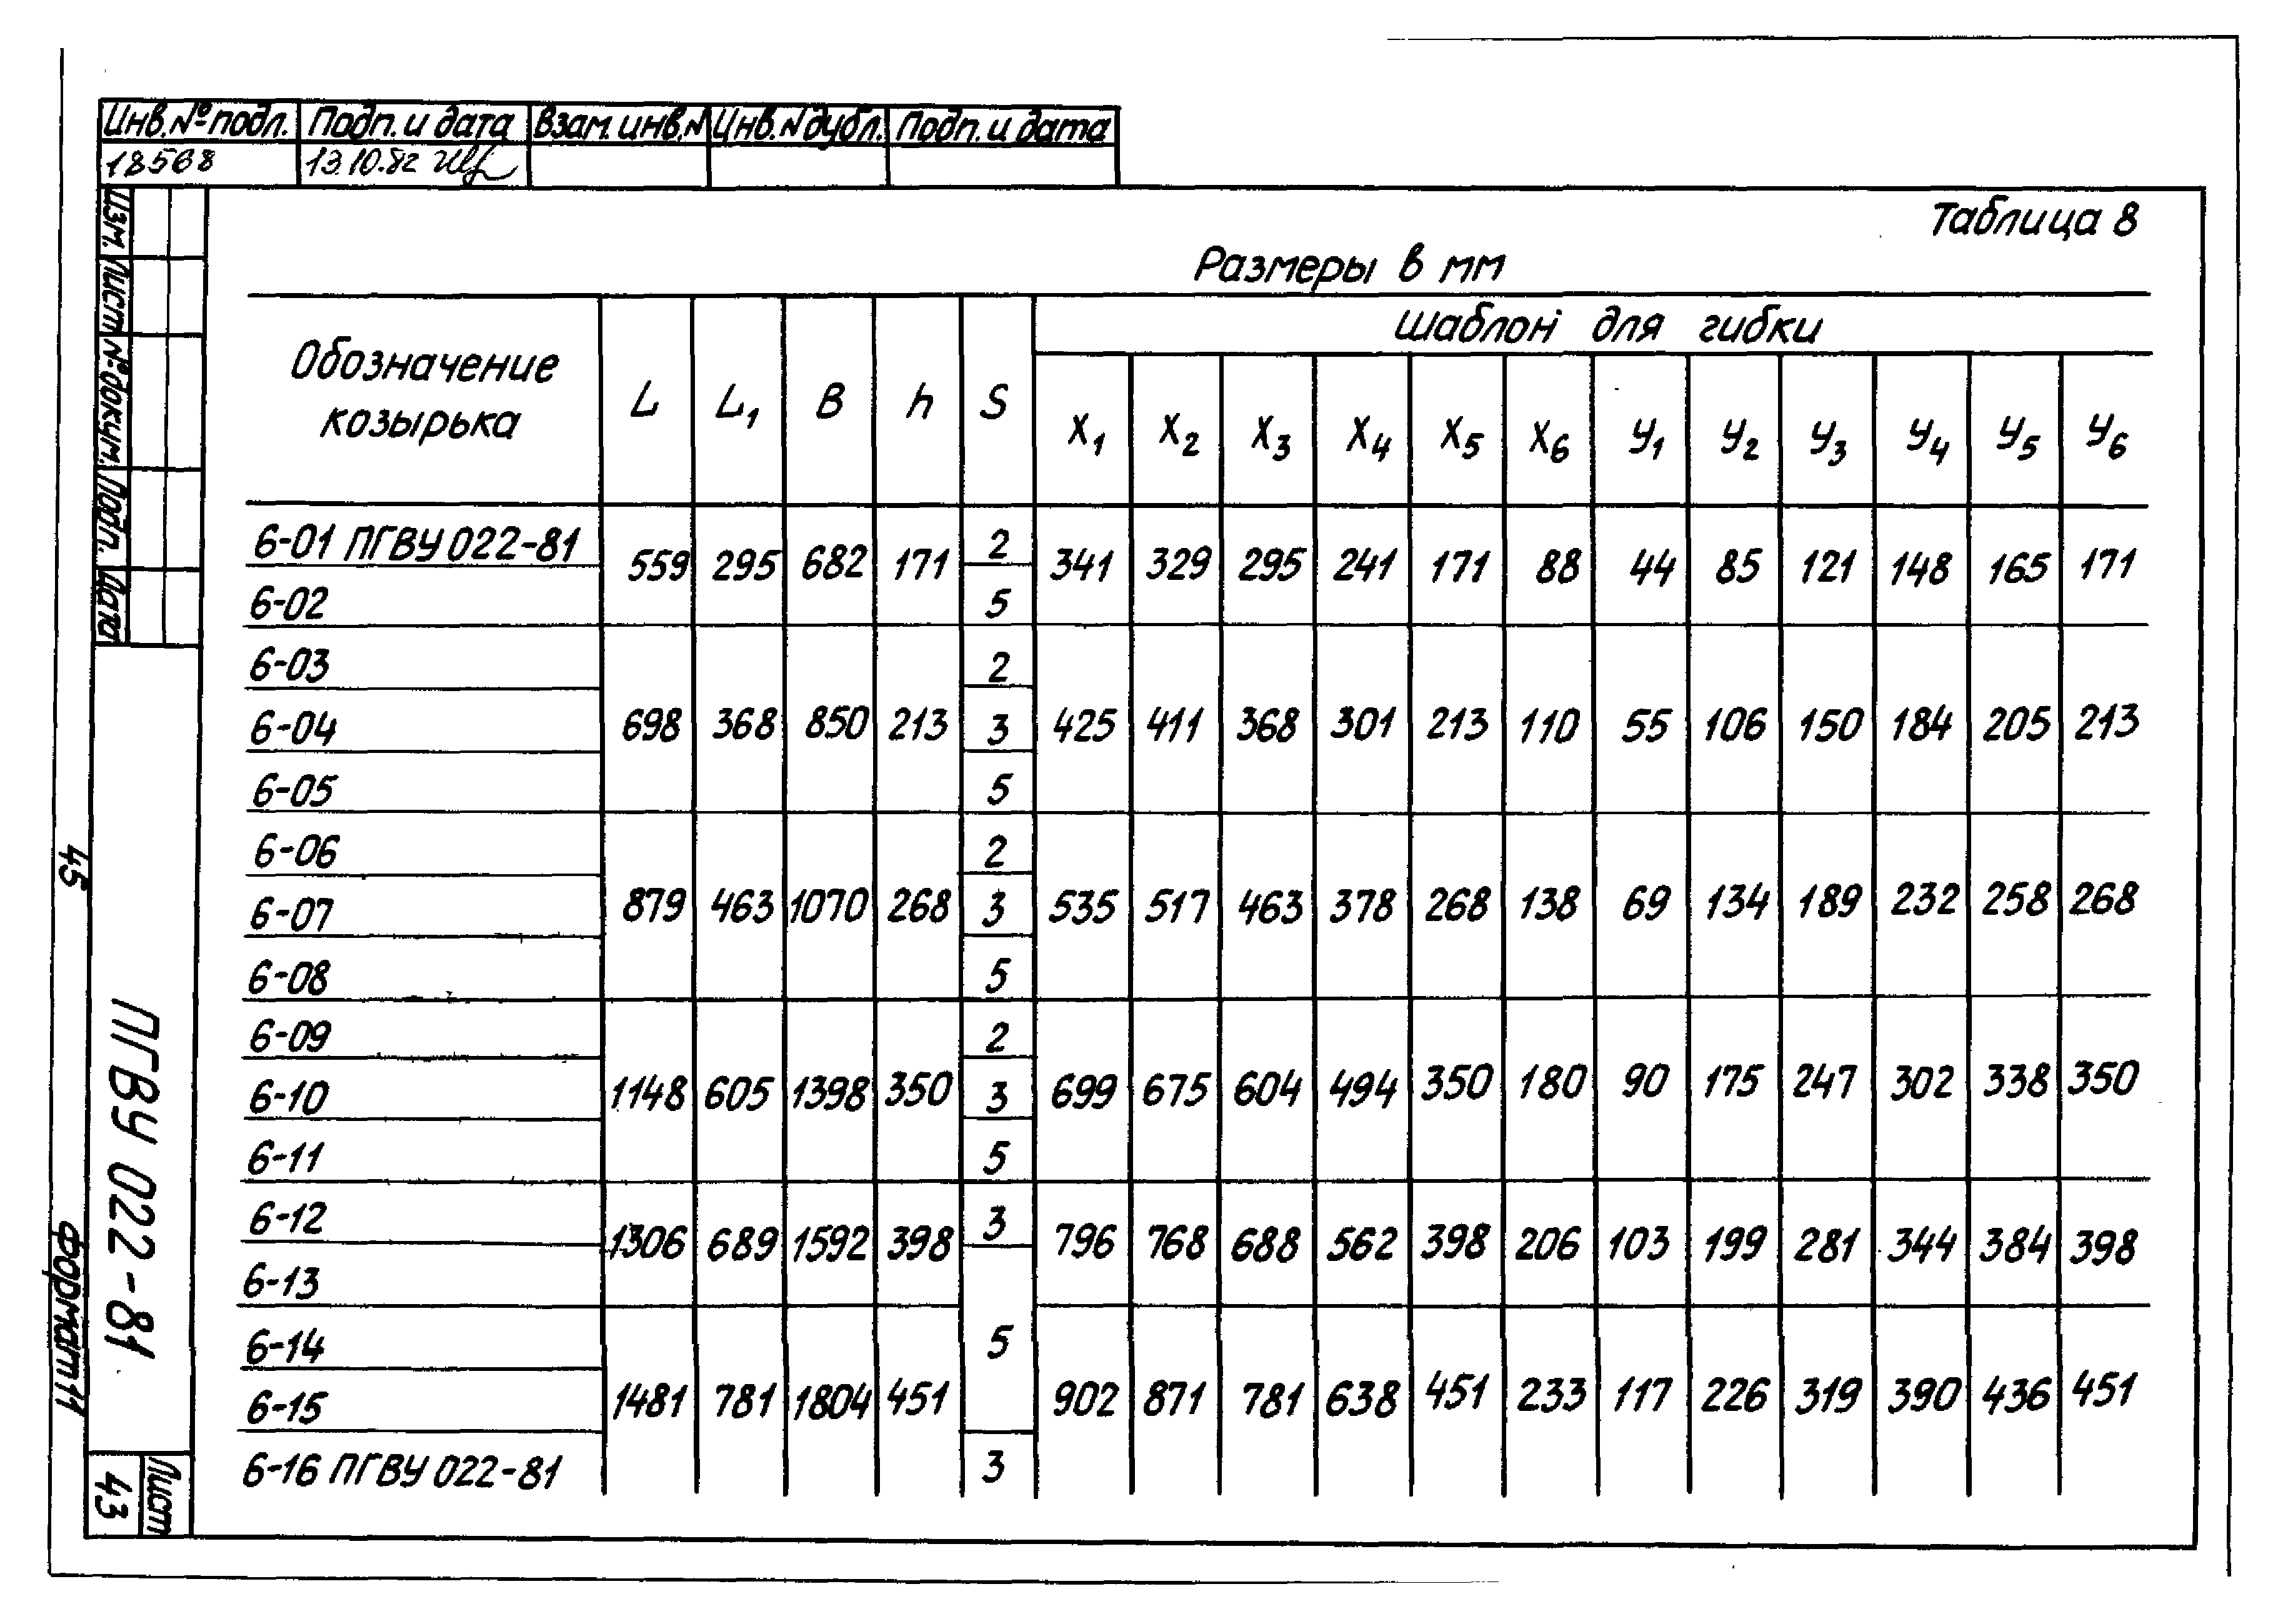 Инв.№подл. Подп. и дата Взам.инв.N Инв.N дубл. Подп. и дата
18568 13.10.82
Таблица 8
Размеры в мм
Обозначение козырька L L1 B h S Шаблон для гибки
X1 X2 X3 X4 X5 X6 У1 У2 У3 У4 У5 У6
6-01 ПГВУ 022-81 559 295 682 171 2 341 329 295 241 171 88 44 85 121 148 165 171
6-02 5
6-03 2
6-04 698 368 850 213 3 425 411 368 301 213 110 55 106 150 184 205 213
6-05 5
6-06 2
6-07 879 463 1070 268 3 535 517 463 378 268 138 69 134 189 232 258 268
6-08 5
6-09 2
6-10 1148 605 1398 350 3 699 675 604 494 350 180 90 175 247 302 338 350
6-11 5
6-12 1306 689 1592 398 3 796 768 688 562 398 206 103 199 281 344 384 398
6-13
6-14 5
6-15 1481 781 1804 451 902 871 781 638 451 233 117 226 319 390 436 451
6-16 ПГВУ 022-81 3
Изм. Лист № докум. Подп. Дата
ПГВУ 022-81
Лист
43
45
Формат 11